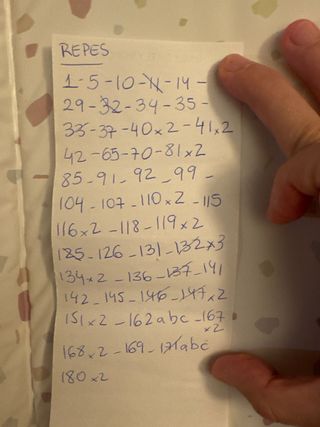 REPES
1-5-10-11-14-
29-32-34-35-
35-37-40x2-41x2
42-65-70-81x2
85-91-92-99-
104-107-110x2-115
116x2-118-119x2
125-126-131-132x3
134x2-136-137-141
142-145-146-147x2
151x2-162abc-167
x2
168x2-169-171abc
180x2